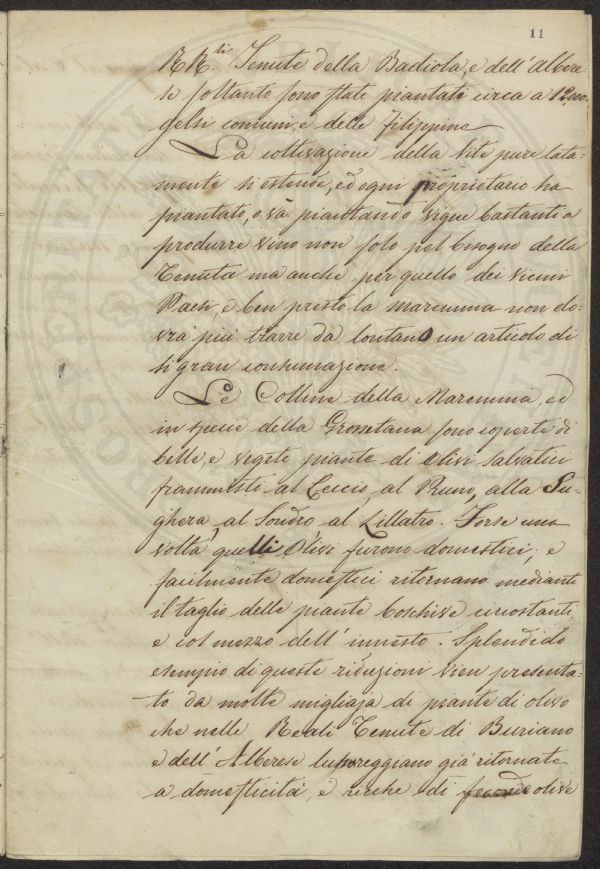 11
RR.li Tenute della Badiola, e dell'Albere=
se soltanto sono state piantate circa a 12,000
gelsi comuni, e delle Filippine
La coltivazione della Vite pure lata=
mente si estende, ed ogni proprietario ha
piantato, o và piantando vigne bastanti a
produrre vino non solo pel bisogno della
Tenuta ma anche per quello dei vicini
Paesi, e ben presto la maremma non do=
vrà più trarre da lontano un articolo di
si gran consumazione.
Le Colline della Maremma, ed
in specie della Grossetana sono coperte di
belle, e vegete piante di Olivi salvatici
frammisti al Leccio, al Pruno, alla Su=
ghera, al Sondro al Lillatro. Forse una
volta quelli Olivi furono domestici, e
facilmente domestici ritornano mediante
il taglio delle piante boschive circostanti,
e col mezzo dell'innesto. Splendido
esempio di queste riduzioni vien presenta=
to da molte migliaja di piante di olivo
che nelle Reali Tenute di Buriano
e dell'Alberese lussureggiano già ritornate
a domesticità, e ricche di feconde olive